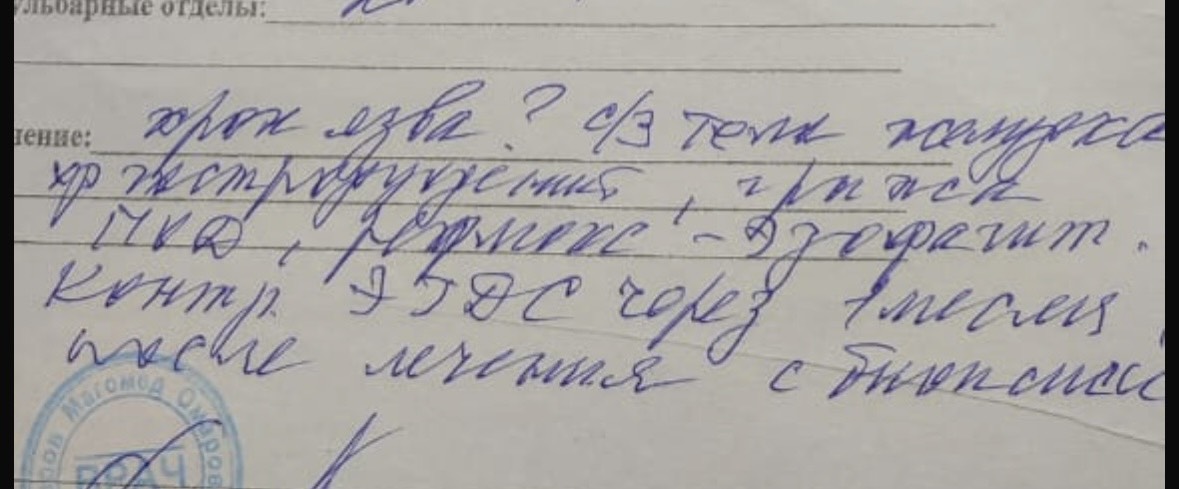 ульбарные отделы:
чение: хрон язва ? с/з тела желудка
хр гастродуоденит, грыжа
ПОД, рефлюкс-эзофагит.
Контр. ЭГДС через 1 месяц
после лечения с биопсией
Магомед Омаров
ВРАЧ